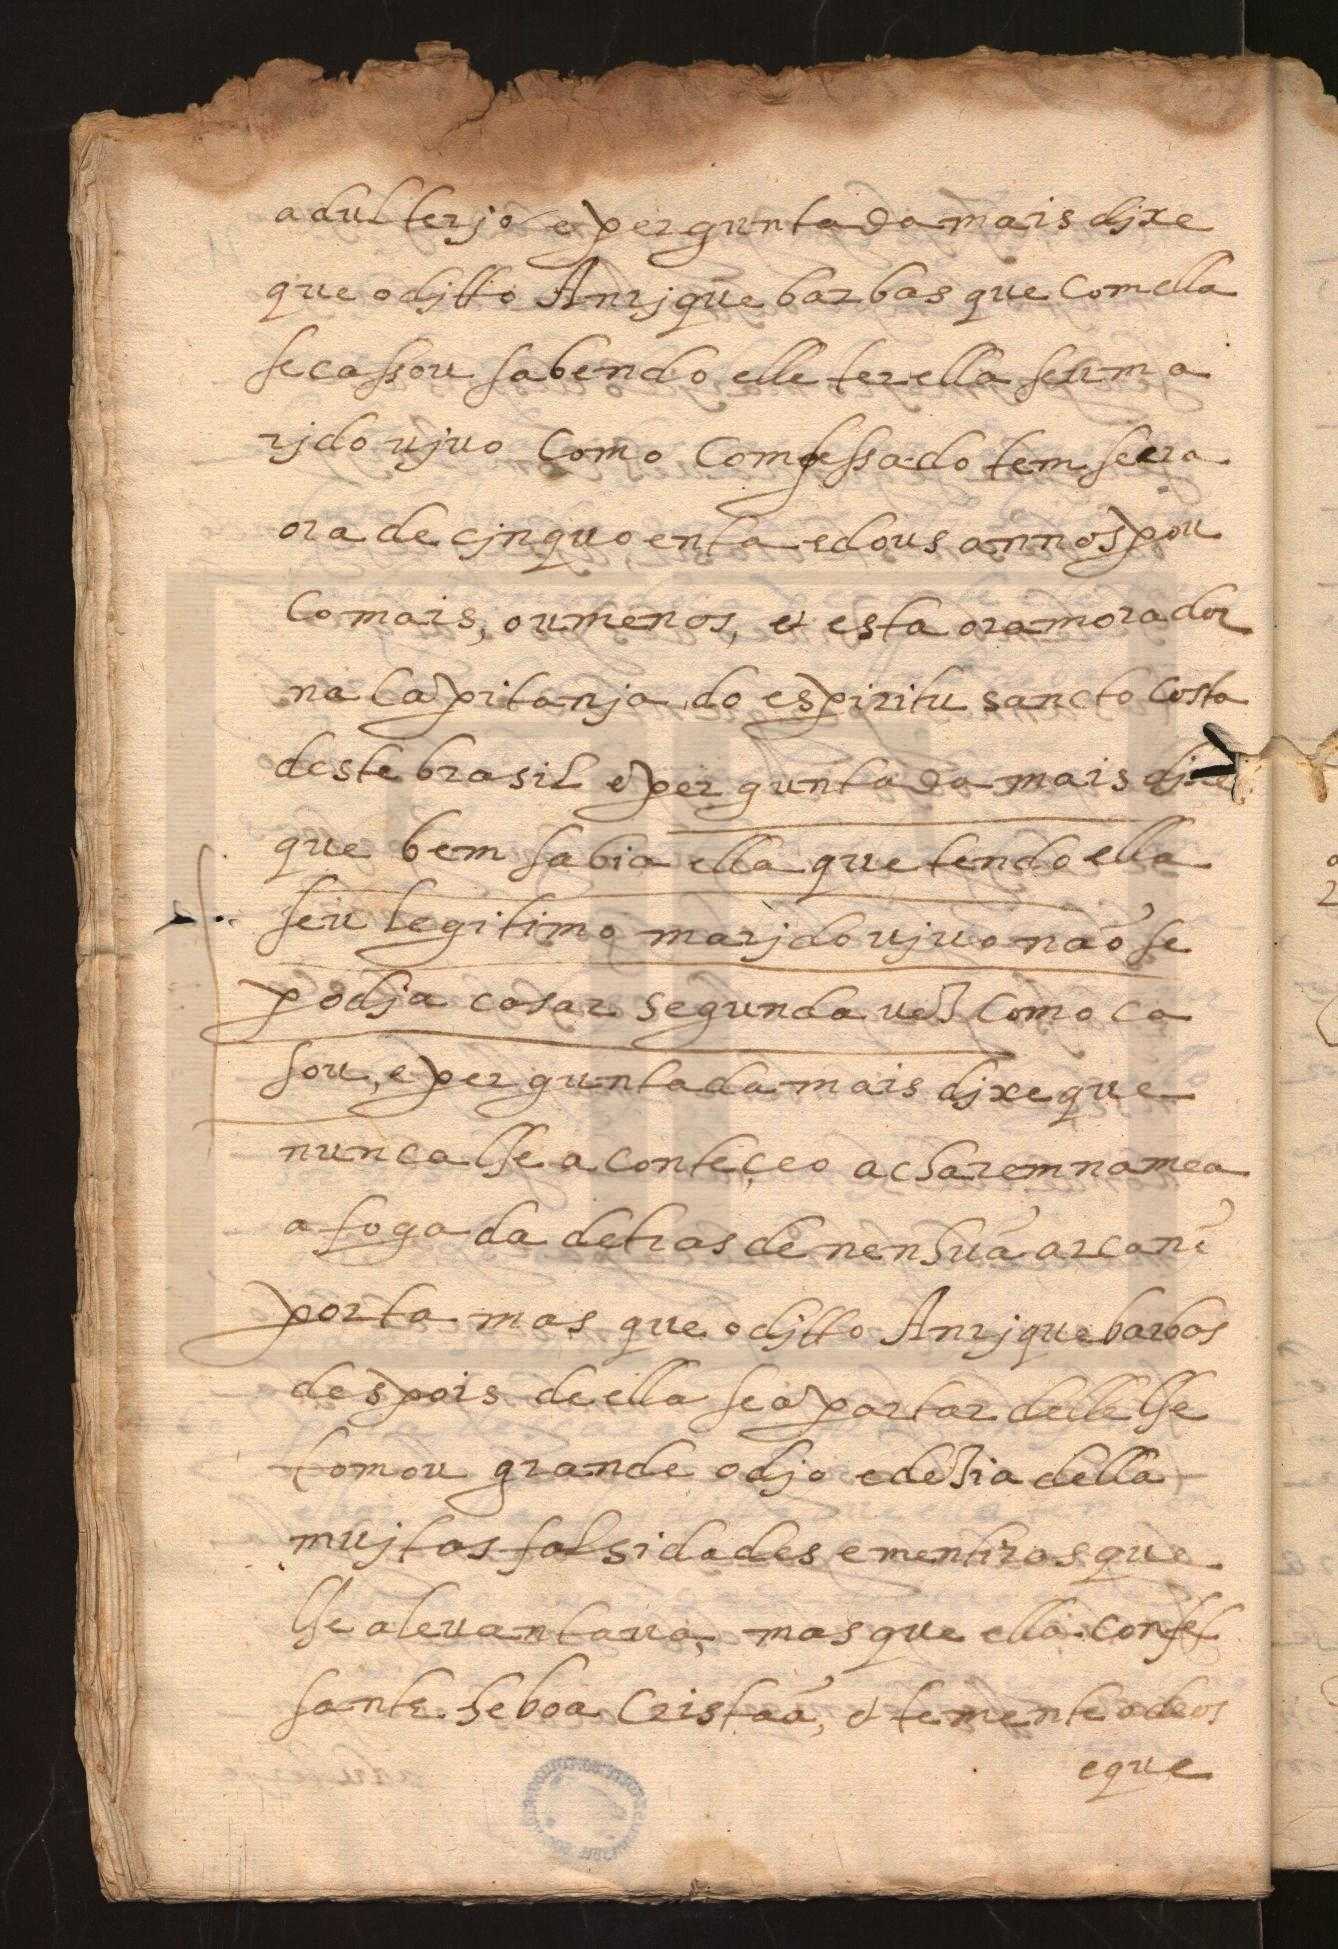 adulterjo e perguntada mais djxe
que o djtto Anrjque barbas que Com ella
se cassou sabendo elle ter ella seu ma
rjdo vjuo Como Comfessado tem sera
ora de cjnquoenta e dous annos pou
Co mais, ou menos, e esta ora morador
na Capitanja do espiritu sancto Costa
deste brasil e perguntada mais djxe
que bem sabia ella que tendo ella
seu legitimo marjdo vjuo não se
podja casar segunda uez Como ca
sou, e perguntada mais djxe que
nunca lhe aconteçeo acharem na mea
afogada detras de nenhuã arca nẽ
porta mas que o djtto Anrjque barbas
despois de ella se apartar delle lhe
tomou grande odjo e dezia della
mujtas falsidades e mentiras que
lhe aleuantaua, mas que ella confes
sante he boa Cristaã, e temente a deos
e que